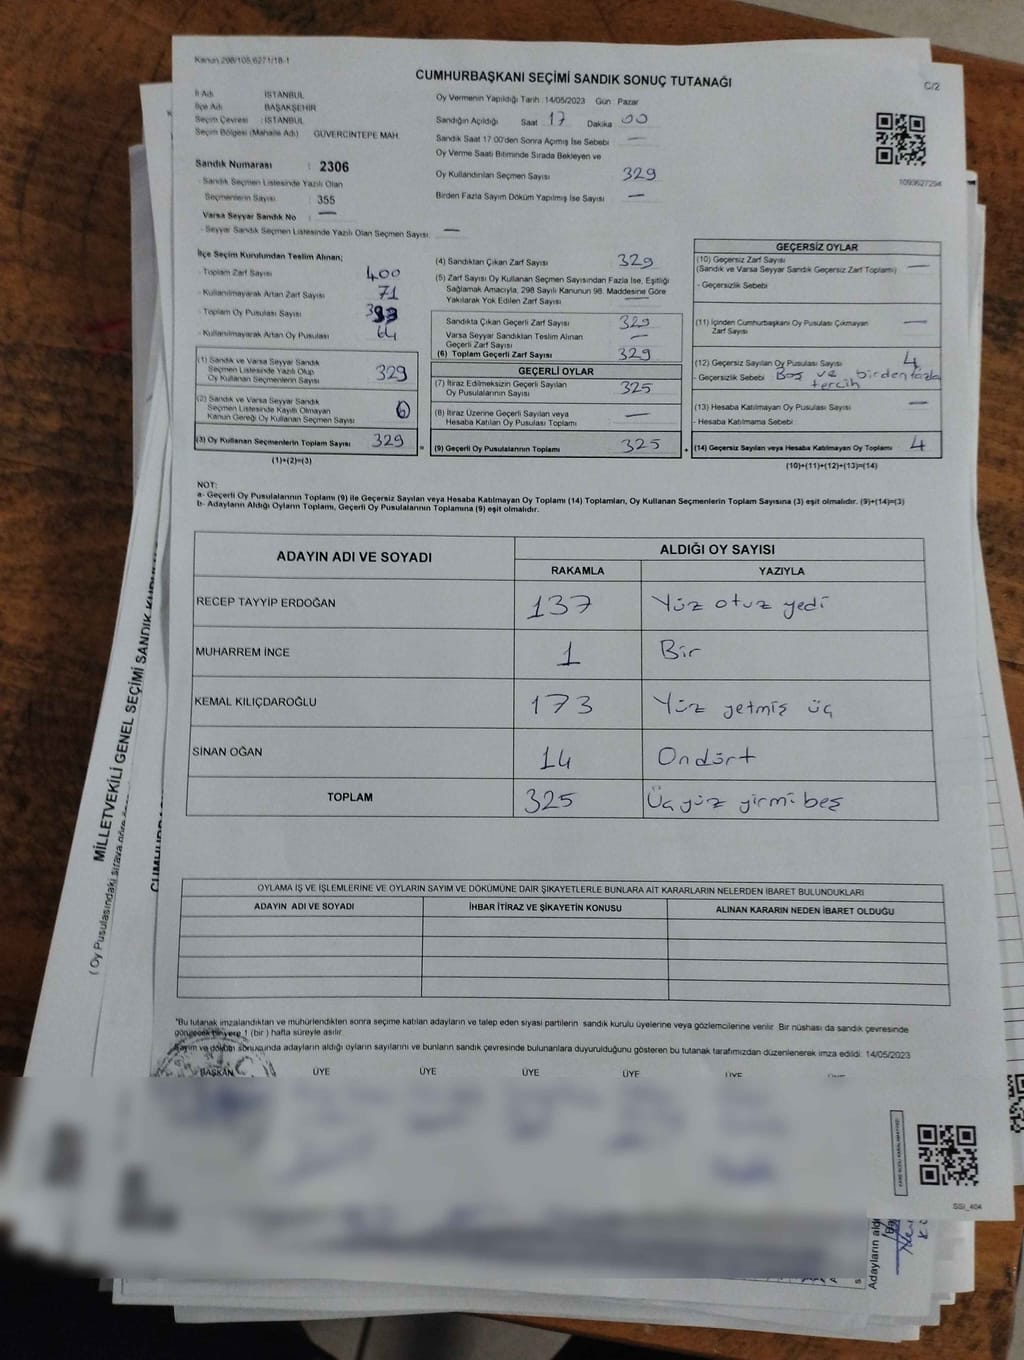 Kanun 298/105,6271/18-1
CUMHURBAŞKANI SEÇİMİ SANDIK SONUÇ TUTANAĞI
C/2
İl Adı : İSTANBUL
İlçe Adı : BAŞAKŞEHİR
Seçim Çevresi : İSTANBUL
Seçim Bölgesi (Mahalle Adı) : GÜVERCİNTEPE MAH.
Sandık Numarası : 2306
- Sandık Seçmen Listesinde Yazılı Olan
Seçmenlerin Sayısı : 355
Varsa Seyyar Sandık No : —
- Seyyar Sandık Seçmen Listesinde Yazılı Olan Seçmen Sayısı: —
Oy Vermenin Yapıldığı Tarih : 14/05/2023 Gün : Pazar
Sandığın Açıldığı Saat : 17 Dakika : 00
Sandık Saat 17.00'den Sonra Açımış İse Sebebi : —
Oy Verme Saati Bitiminde Sırada Bekleyen ve
Oy Kullandırılan Seçmen Sayısı : 329
Birden Fazla Sayım Döküm Yapılmış İse Sayısı : —
1093627294
İlçe Seçim Kurulundan Teslim Alınan;
- Toplam Zarf Sayısı : 400
- Kullanılmayarak Artan Zarf Sayısı : 71
- Toplam Oy Pusulası Sayısı : 393
- Kullanılmayarak Artan Oy Pusulası : 64
(1) Sandık ve Varsa Seyyar Sandık
Seçmen Listesinde Yazılı Olup
Oy Kullanan Seçmenlerin Sayısı : 329
(2) Sandık ve Varsa Seyyar Sandık
Seçmen Listesinde Kayıtlı Olmayan
Kanun Gereği Oy Kullanan Seçmen Sayısı :
(3) Oy Kullanan Seçmenlerin Toplam Sayısı : 329
(1)+(2)=(3)
(4) Sandıktan Çıkan Zarf Sayısı : 329
(5) Zarf Sayısı Oy Kullanan Seçmen Sayısından Fazla İse, Eşitliği
Sağlamak Amacıyla, 298 Sayılı Kanunun 98. Maddesine Göre
Yakılarak Yok Edilen Zarf Sayısı : —
Sandıkta Çıkan Geçerli Zarf Sayısı : 329
Varsa Seyyar Sandıktan Teslim Alınan
Geçerli Zarf Sayısı : —
(6) Toplam Geçerli Zarf Sayısı : 329
GEÇERLİ OYLAR
(7) İtiraz Edilmeksizin Geçerli Sayılan
Oy Pusulalarının Sayısı : 325
(8) İtiraz Üzerine Geçerli Sayılan veya
Hesaba Katılan Oy Pusulası Toplamı : —
(9) Geçerli Oy Pusulalarının Toplamı : 325
GEÇERSİZ OYLAR
(10) Geçersiz Zarf Sayısı :
(Sandık ve Varsa Seyyar Sandık Geçersiz Zarf Toplamı) —
- Geçersizlik Sebebi :
(11) İçinden Cumhurbaşkanı Oy Pusulası Çıkmayan
Zarf Sayısı : —
(12) Geçersiz Sayılan Oy Pusulası Sayısı : 4
- Geçersizlik Sebebi : Boş ve birden fazla
tercih
(13) Hesaba Katılmayan Oy Pusulası Sayısı : —
- Hesaba Katılmama Sebebi :
(14) Geçersiz Sayılan veya Hesaba Katılmayan Oy Toplamı : 4
(10)+(11)+(12)+(13)=(14)
NOT:
a- Geçerli Oy Pusulalarının Toplamı (9) ile Geçersiz Sayılan veya Hesaba Katılmayan Oy Toplamı (14) Toplamları, Oy Kullanan Seçmenlerin Toplam Sayısına (3) eşit olmalıdır. (9)+(14)=(3)
b- Adayların Aldığı Oyların Toplamı, Geçerli Oy Pusulalarının Toplamına (9) eşit olmalıdır.
ADAYIN ADI VE SOYADI
ALDIĞI OY SAYISI
RAKAMLA YAZIYLA
RECEP TAYYİP ERDOĞAN 137 Yüz otuz yedi
MUHARREM İNCE 1 Bir
KEMAL KILIÇDAROĞLU 173 Yüz yetmiş üç
SİNAN OĞAN 14 Ondört
TOPLAM 325 Üçyüz yirmi beş
OYLAMA İŞ VE İŞLEMLERİNE VE OYLARIN SAYIM VE DÖKÜMÜNE DAİR ŞİKAYETLERLE BUNLARA AİT KARARLARIN NELERDEN İBARET BULUNDUKLARI
ADAYIN ADI VE SOYADI İHBAR İTİRAZ VE ŞİKAYETİN KONUSU ALINAN KARARIN NEDEN İBARET OLDUĞU
"Bu tutanak imzalandıktan ve mühürlendikten sonra seçime katılan adayların ve talep eden siyasi partilerin sandık kurulu üyelerine veya gözlemcilerine verilir. Bir nüshası da sandık çevresinde
görülecek bir yere 1 (bir) hafta süreyle asılır.
Sayım ve döküm sonucunda adayların aldığı oyların sayılarını ve bunların sandık çevresinde bulunanlara duyurulduğunu gösteren bu tutanak tarafımızdan düzenlenerek imza edildi. 14/05/2023
BAŞKAN ÜYE ÜYE ÜYE ÜYE ÜYE ÜYE
SSI_404
MİLLETVEKİLİ GENEL SEÇİMİ SANDIK
( Oy Pusulasındaki sıraya göre
Adayların aldı